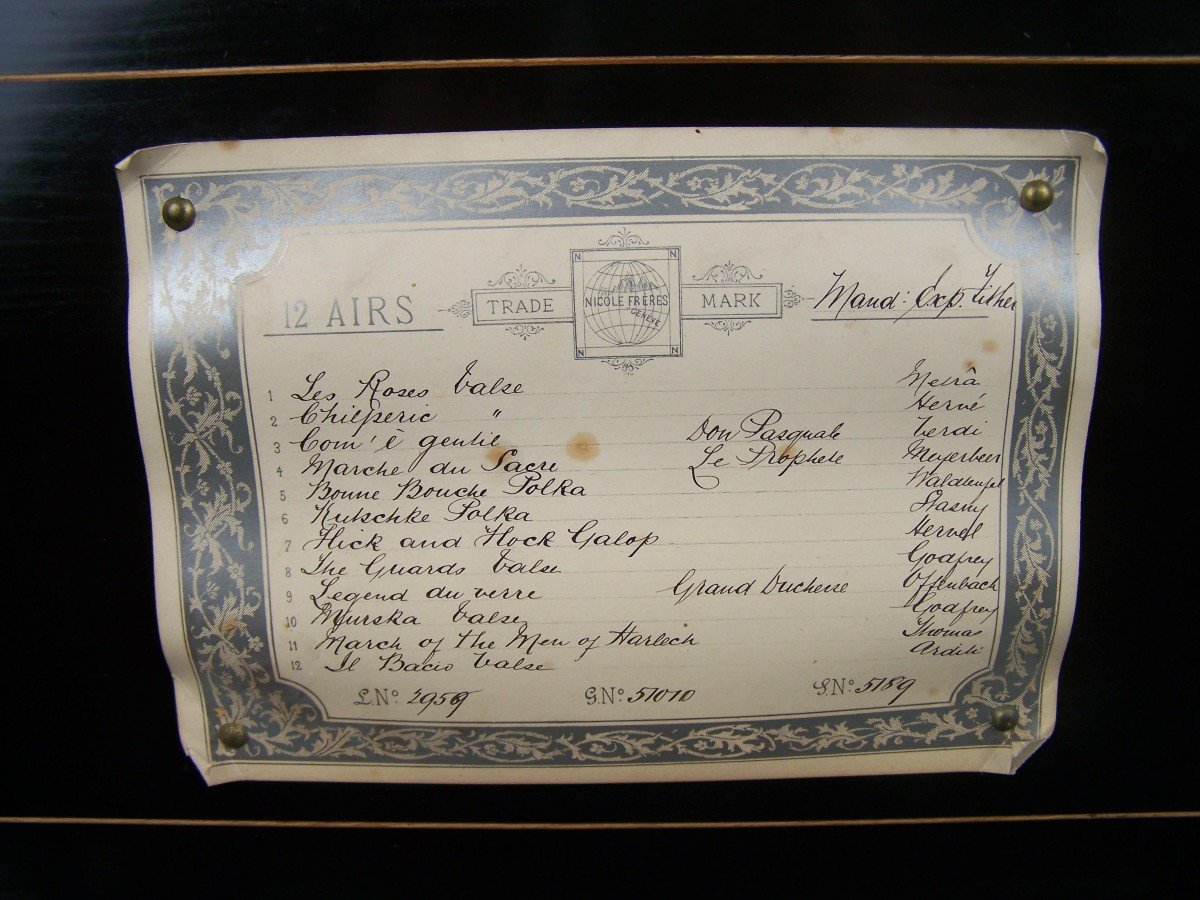 12 AIRS
TRADE
N N
NICOLE FRÈRES
GENÈVE
N N
MARK
Mand: Exp. Zither
1 Les Roses Valse Metrâ
2 Chilperic " Hervé
3 Com'e gentil Don Pasquale Verdi
4 Marche du Sacre Le Prophete Meyerbeer
5 Bonne Bouche Polka Waldteufel
6 Kutschke Polka Stasny
7 Flick and Flock Galop
8 The Guards Valse Godfrey
9 Legend du verre Grand Duchesse Offenbach
10 Murska Valse Godfrey
11 March of the Men of Harlech Thomas
12 Il Bacio Valse Arditi
L.No: G.No: 51010 S.No: 5189